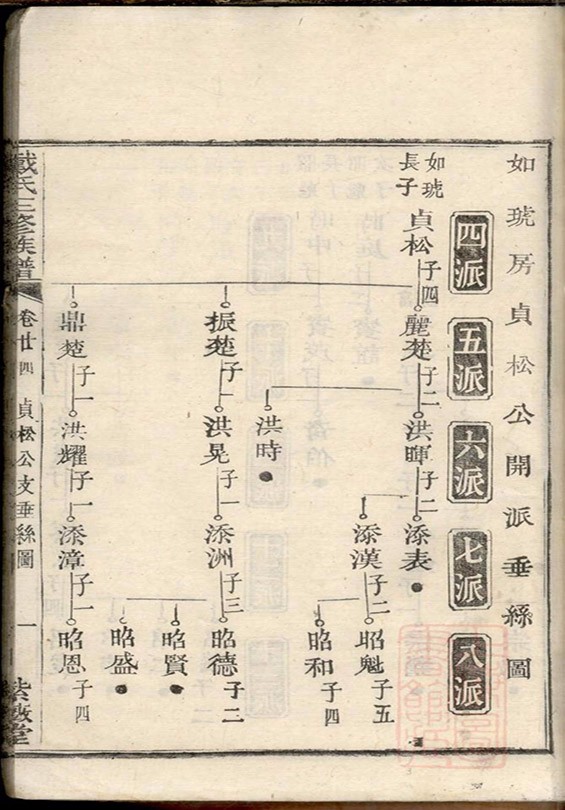 如琥房貞松公開派垂絲圖
四派
五派
六派
七派
八派
如琥長子
貞松 子四
麗楚 子二
洪暉 子二
添表
添漢 子二
昭魁 子五
昭和 子四
洪時
振楚 子一
洪晃 子一
添洲 子三
昭德 子二
昭賢
昭盛
鼎楚 子一
洪耀 子一
添漳 子一
昭恩 子四
戴氏三修族譜
卷廿四
貞松公支垂絲圖
一